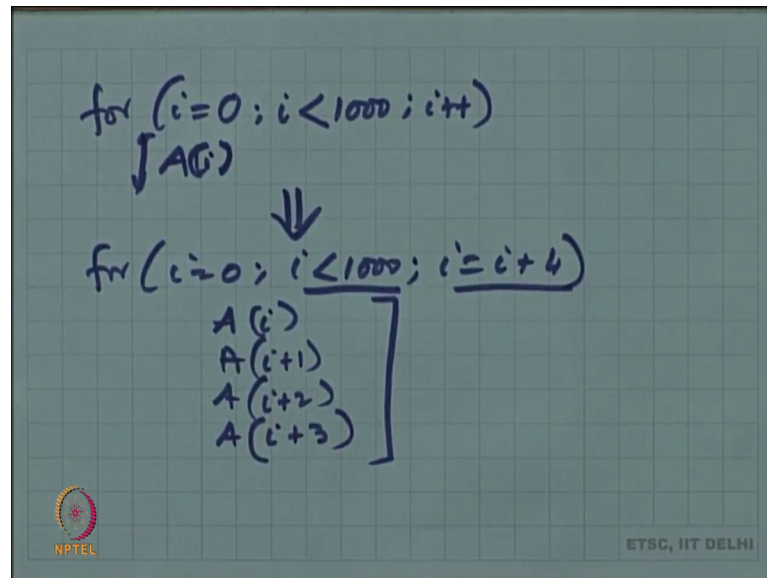 for (i=0; i<1000; i++)
A(i)
⇓
for (i=0; i<1000; i=i+4)
A(i)
A(i+1)
A(i+2)
A(i+3)
NPTEL
ETSC, IIT DELHI